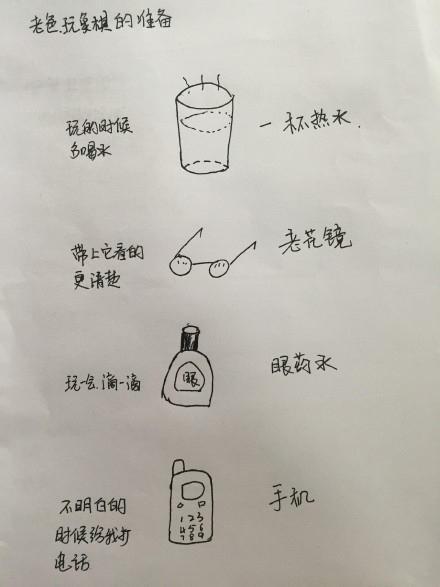 老爸玩象棋的准备
玩的时候
多喝水
一杯热水.
带上它看的
更清楚
老花镜
玩一会,滴一滴
眼
眼药水
不明白的
时候给我打
电话
1 2 3
4 5 6
7 8 9
手机